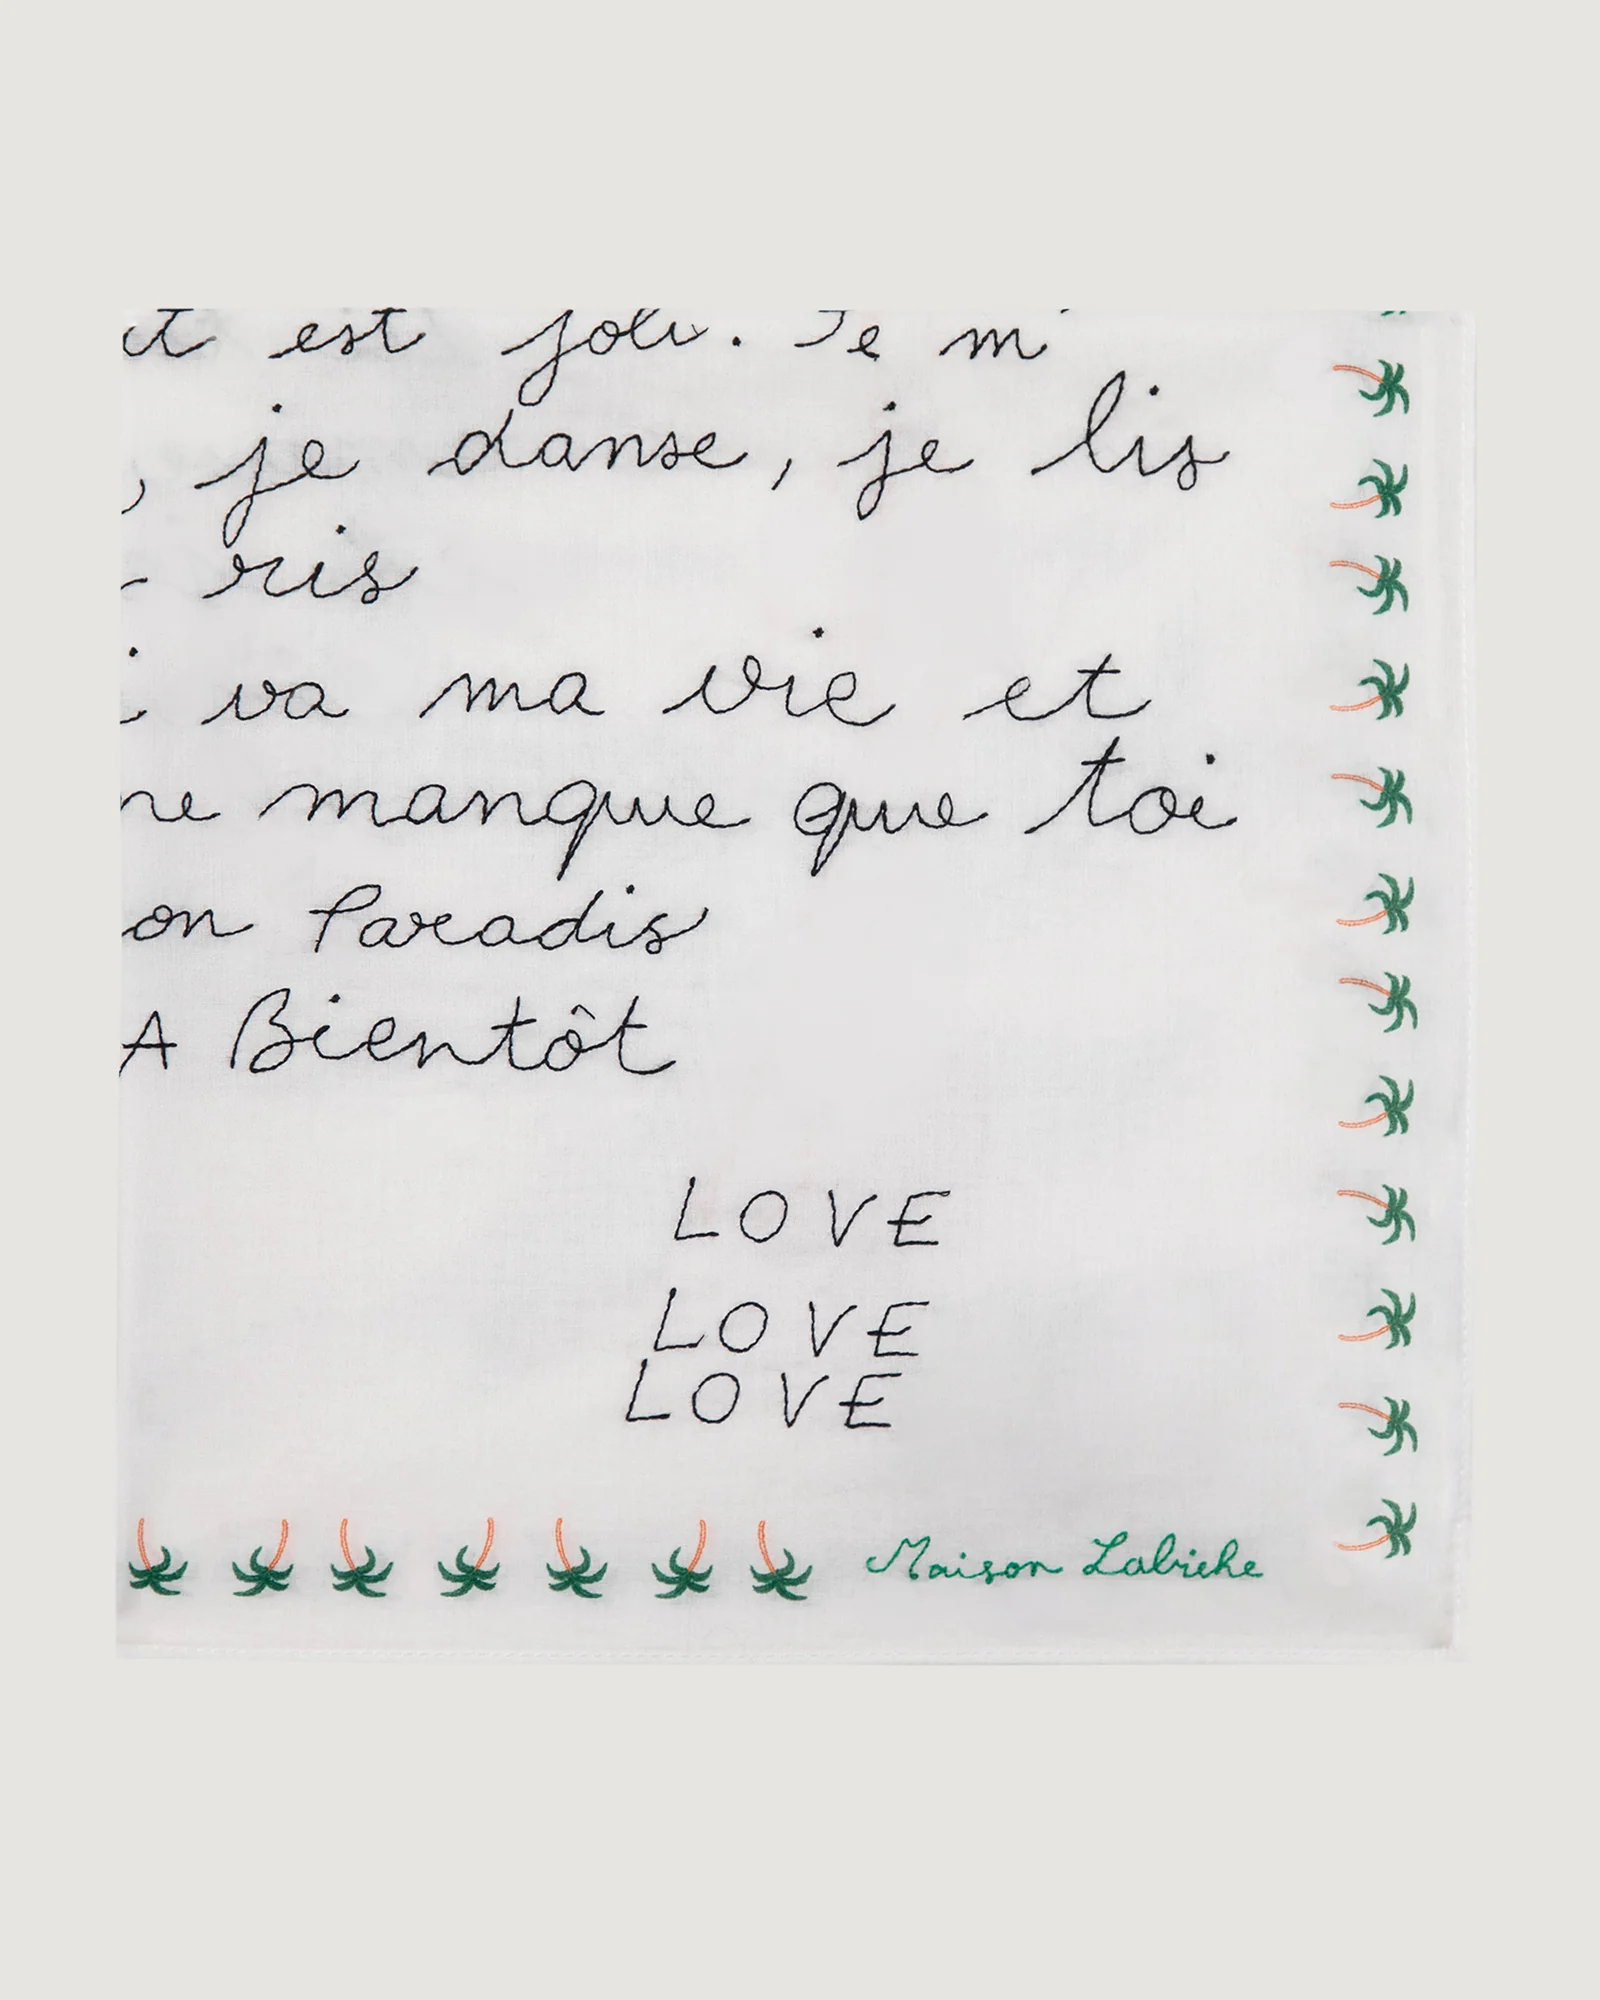 est joli. Je m'
, je danse, je lis
ris
va ma vie et
ne manque que toi
on Paradis
A Bientôt
LOVE
LOVE
LOVE
Maison Labiche